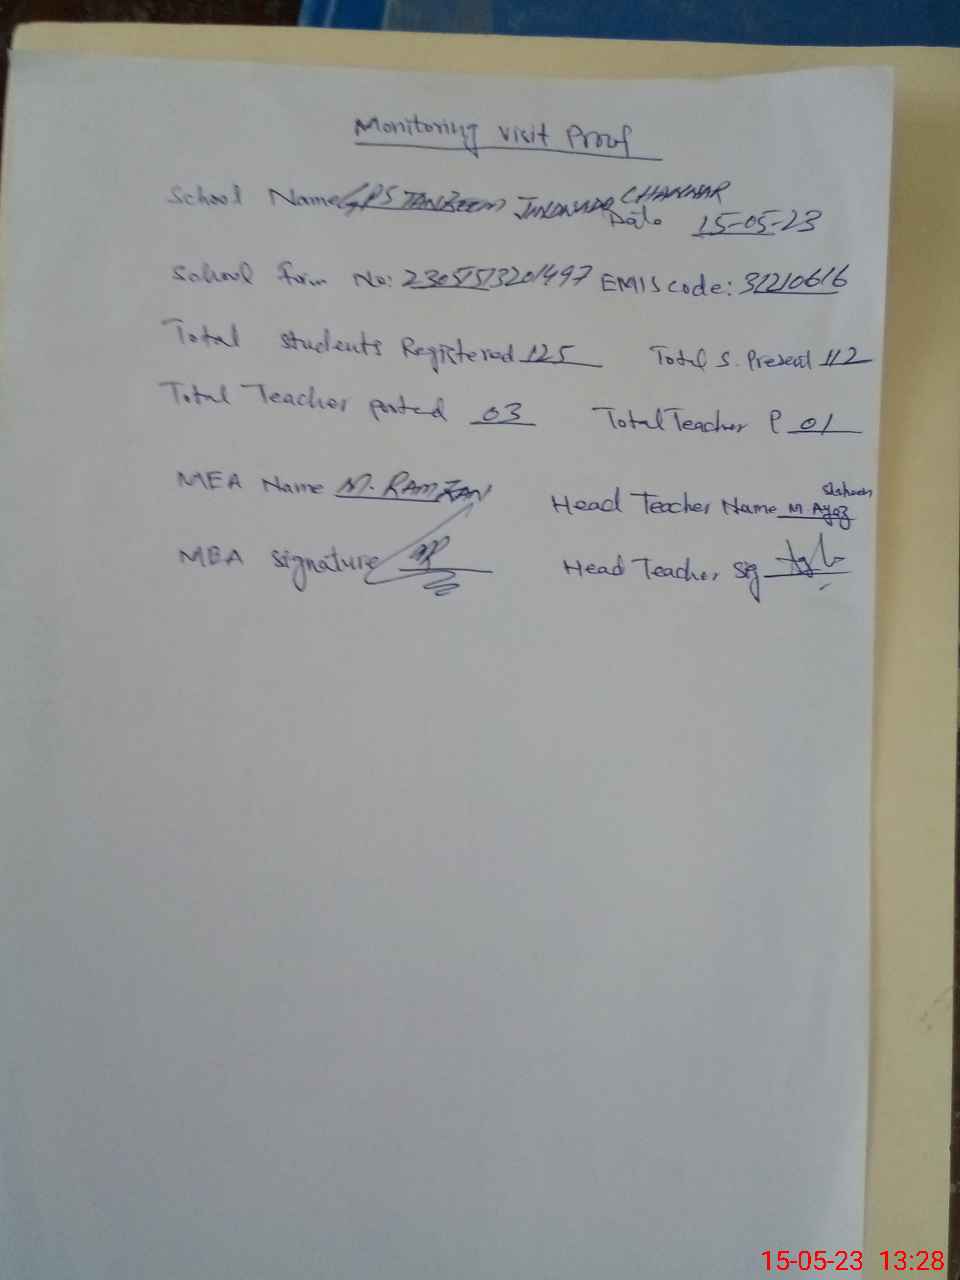 Monitoring Visit Proof
School Name GPS TANZEEM CHANNAR
Date 15-05-23
School form No: 2305513201497 EMIS code: 31210616
Total students Registered 125 Total S. Present 112
Total Teacher posted 03 Total Teacher P 01
MEA Name M. RAMZAN Head Teacher Name M. Ayaz
MEA Signature Head Teacher Sig
15-05-23 13:28